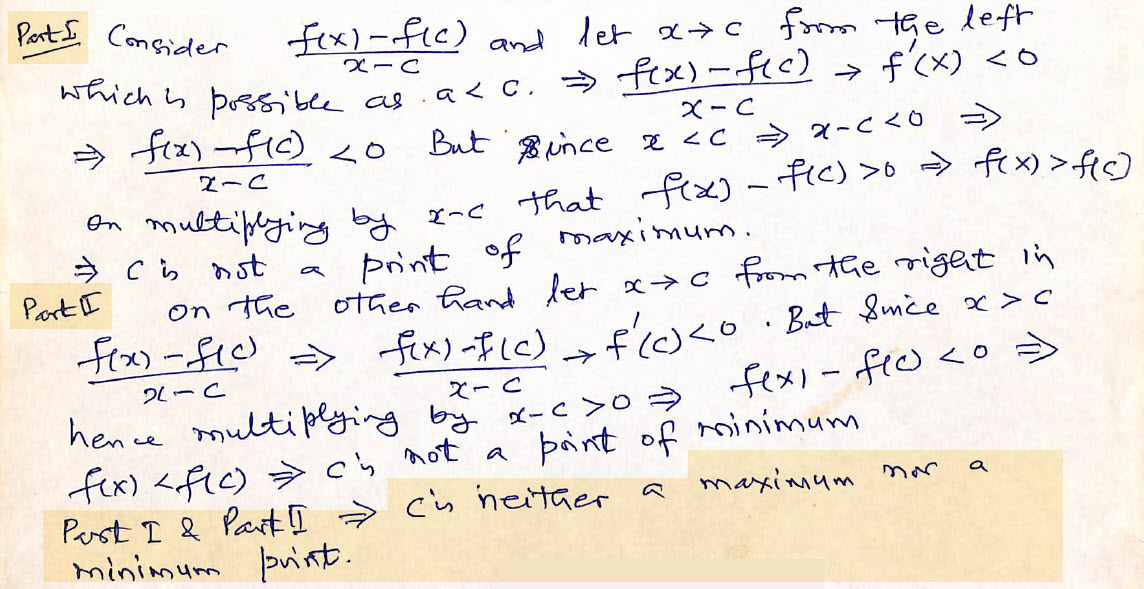 Part I Consider f(x) – f(c) / x – c and let x → c from the left
which is possible as a < c. ⇒ f(x) – f(c) / x – c → f'(x) < 0
⇒ f(x) – f(c) / x – c < 0 But since x < c ⇒ x – c < 0 ⇒
on multiplying by x – c that f(x) – f(c) > 0 ⇒ f(x) > f(c)
⇒ c is not a point of maximum.
Part II on the other hand let x → c from the right in
f(x) – f(c) / x – c ⇒ f(x) – f(c) / x – c → f'(c) < 0 . But since x > c
hence multiplying by x – c > 0 ⇒ f(x) – f(c) < 0 ⇒
f(x) < f(c) ⇒ c is not a point of minimum
Part I & Part II ⇒ c is neither a maximum nor a
minimum point.